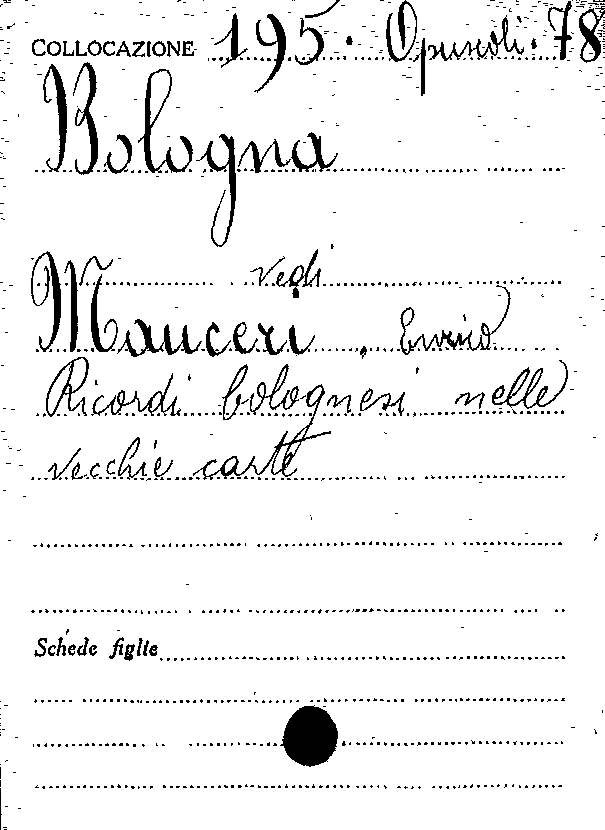 COLLOCAZIONE 195. Opuscoli. 78
Bologna
vedi
Mauceri, Enrico
Ricordi bolognesi nelle
vecchie carte
Schede figlie